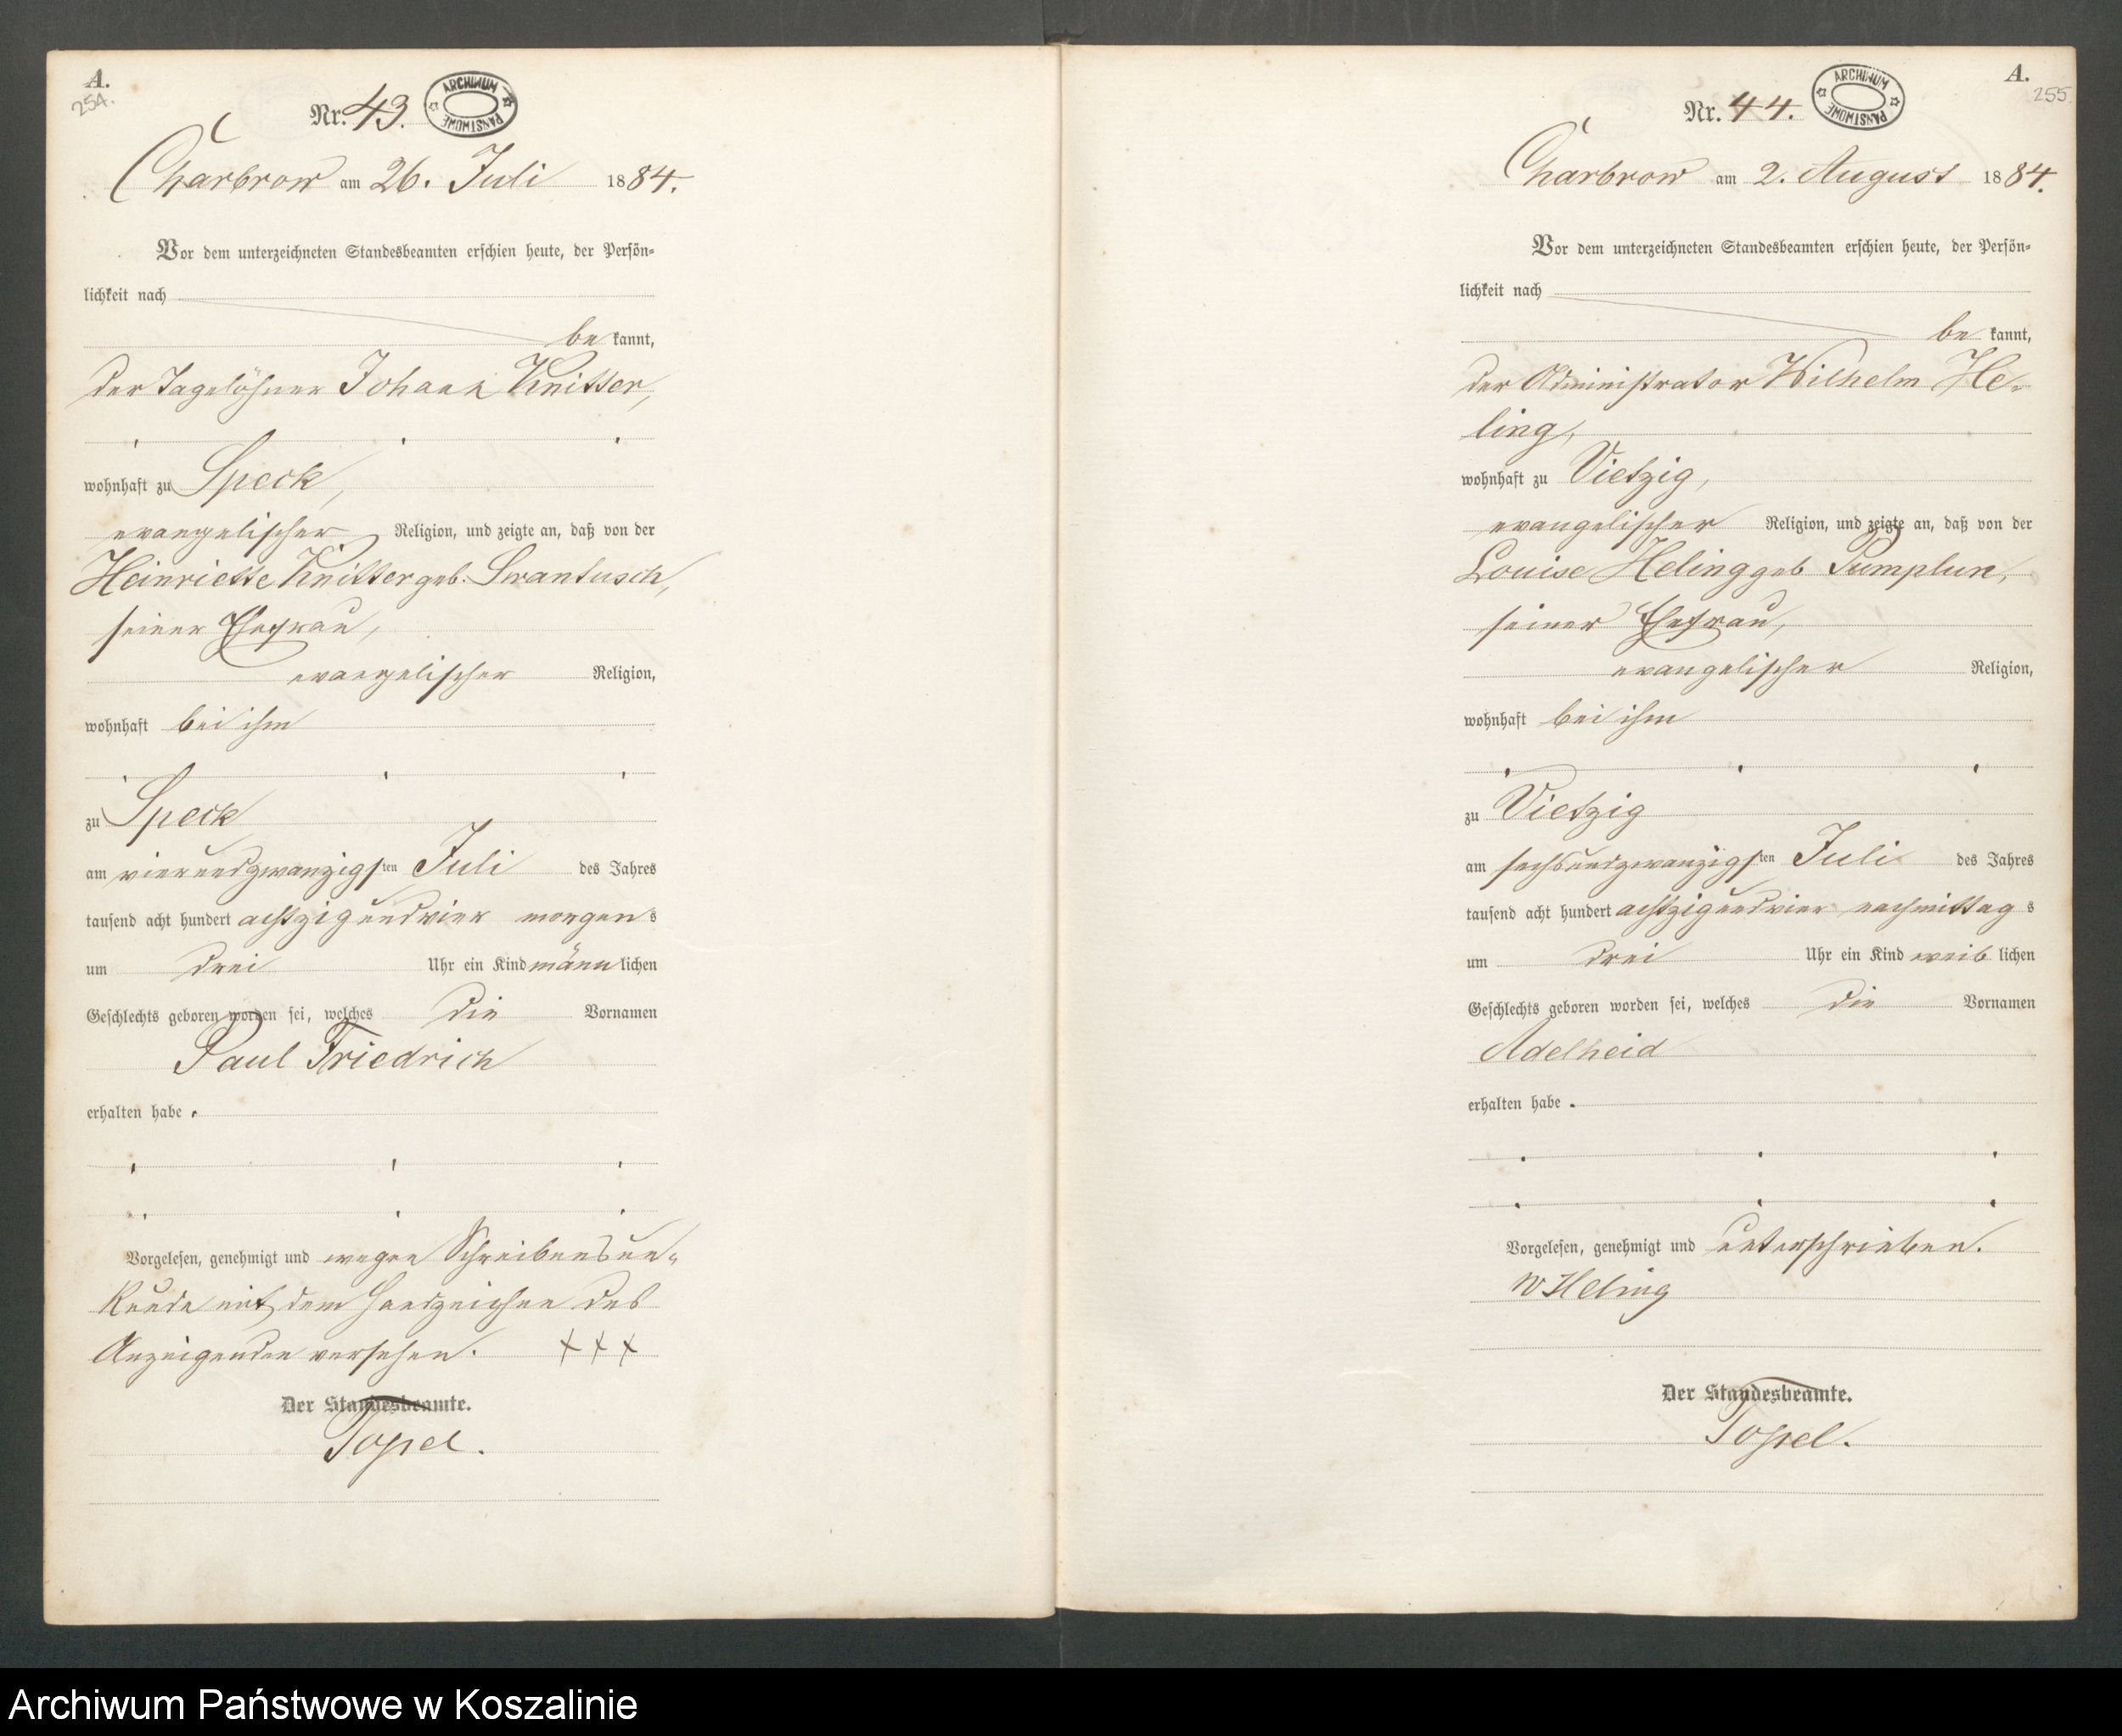 A.
254.
Nr. 43.
ARCHIWUM PAŃSTWOWE
Charbrow am 26. Juli 1884.
Vor dem unterzeichneten Standesbeamten erschien heute, der Persön-
lichkeit nach
be kannt,
der Tagelöhner Johann Knitter,
wohnhaft zu Speck,
evangelischer Religion, und zeigte an, daß von der
Heinriette Knitter geb. Swantusch,
seiner Ehefrau,
evangelischer Religion,
wohnhaft bei ihm
zu Speck
am vierundzwanzigsten Juli des Jahres
tausend acht hundert achtzig und vier morgens
um drei Uhr ein Kind männlichen
Geschlechts geboren worden sei, welches die Vornamen
Paul Friedrich
erhalten habe.
Vorgelesen, genehmigt und wegen Schreibensun-
kunde mit dem Handzeichen des
Anzeigenden versehen. + + +
Der Standesbeamte.
Topel.
A.
255.
Nr. 44.
ARCHIWUM PAŃSTWOWE
Charbrow am 2. August 1884.
Vor dem unterzeichneten Standesbeamten erschien heute, der Persön-
lichkeit nach
be kannt,
der Administrator Wilhelm He-
ling,
wohnhaft zu Vietzig,
evangelischer Religion, und zeigte an, daß von der
Louise Heling geb Pumplun,
seiner Ehefrau,
evangelischer Religion,
wohnhaft bei ihm
zu Vietzig
am sechsundzwanzigsten Juli des Jahres
tausend acht hundert achtzig und vier nachmittags
um drei Uhr ein Kind weiblichen
Geschlechts geboren worden sei, welches die Vornamen
Adelheid
erhalten habe.
Vorgelesen, genehmigt und unterschrieben.
W Heling
Der Standesbeamte.
Topel.
Archiwum Państwowe w Koszalinie